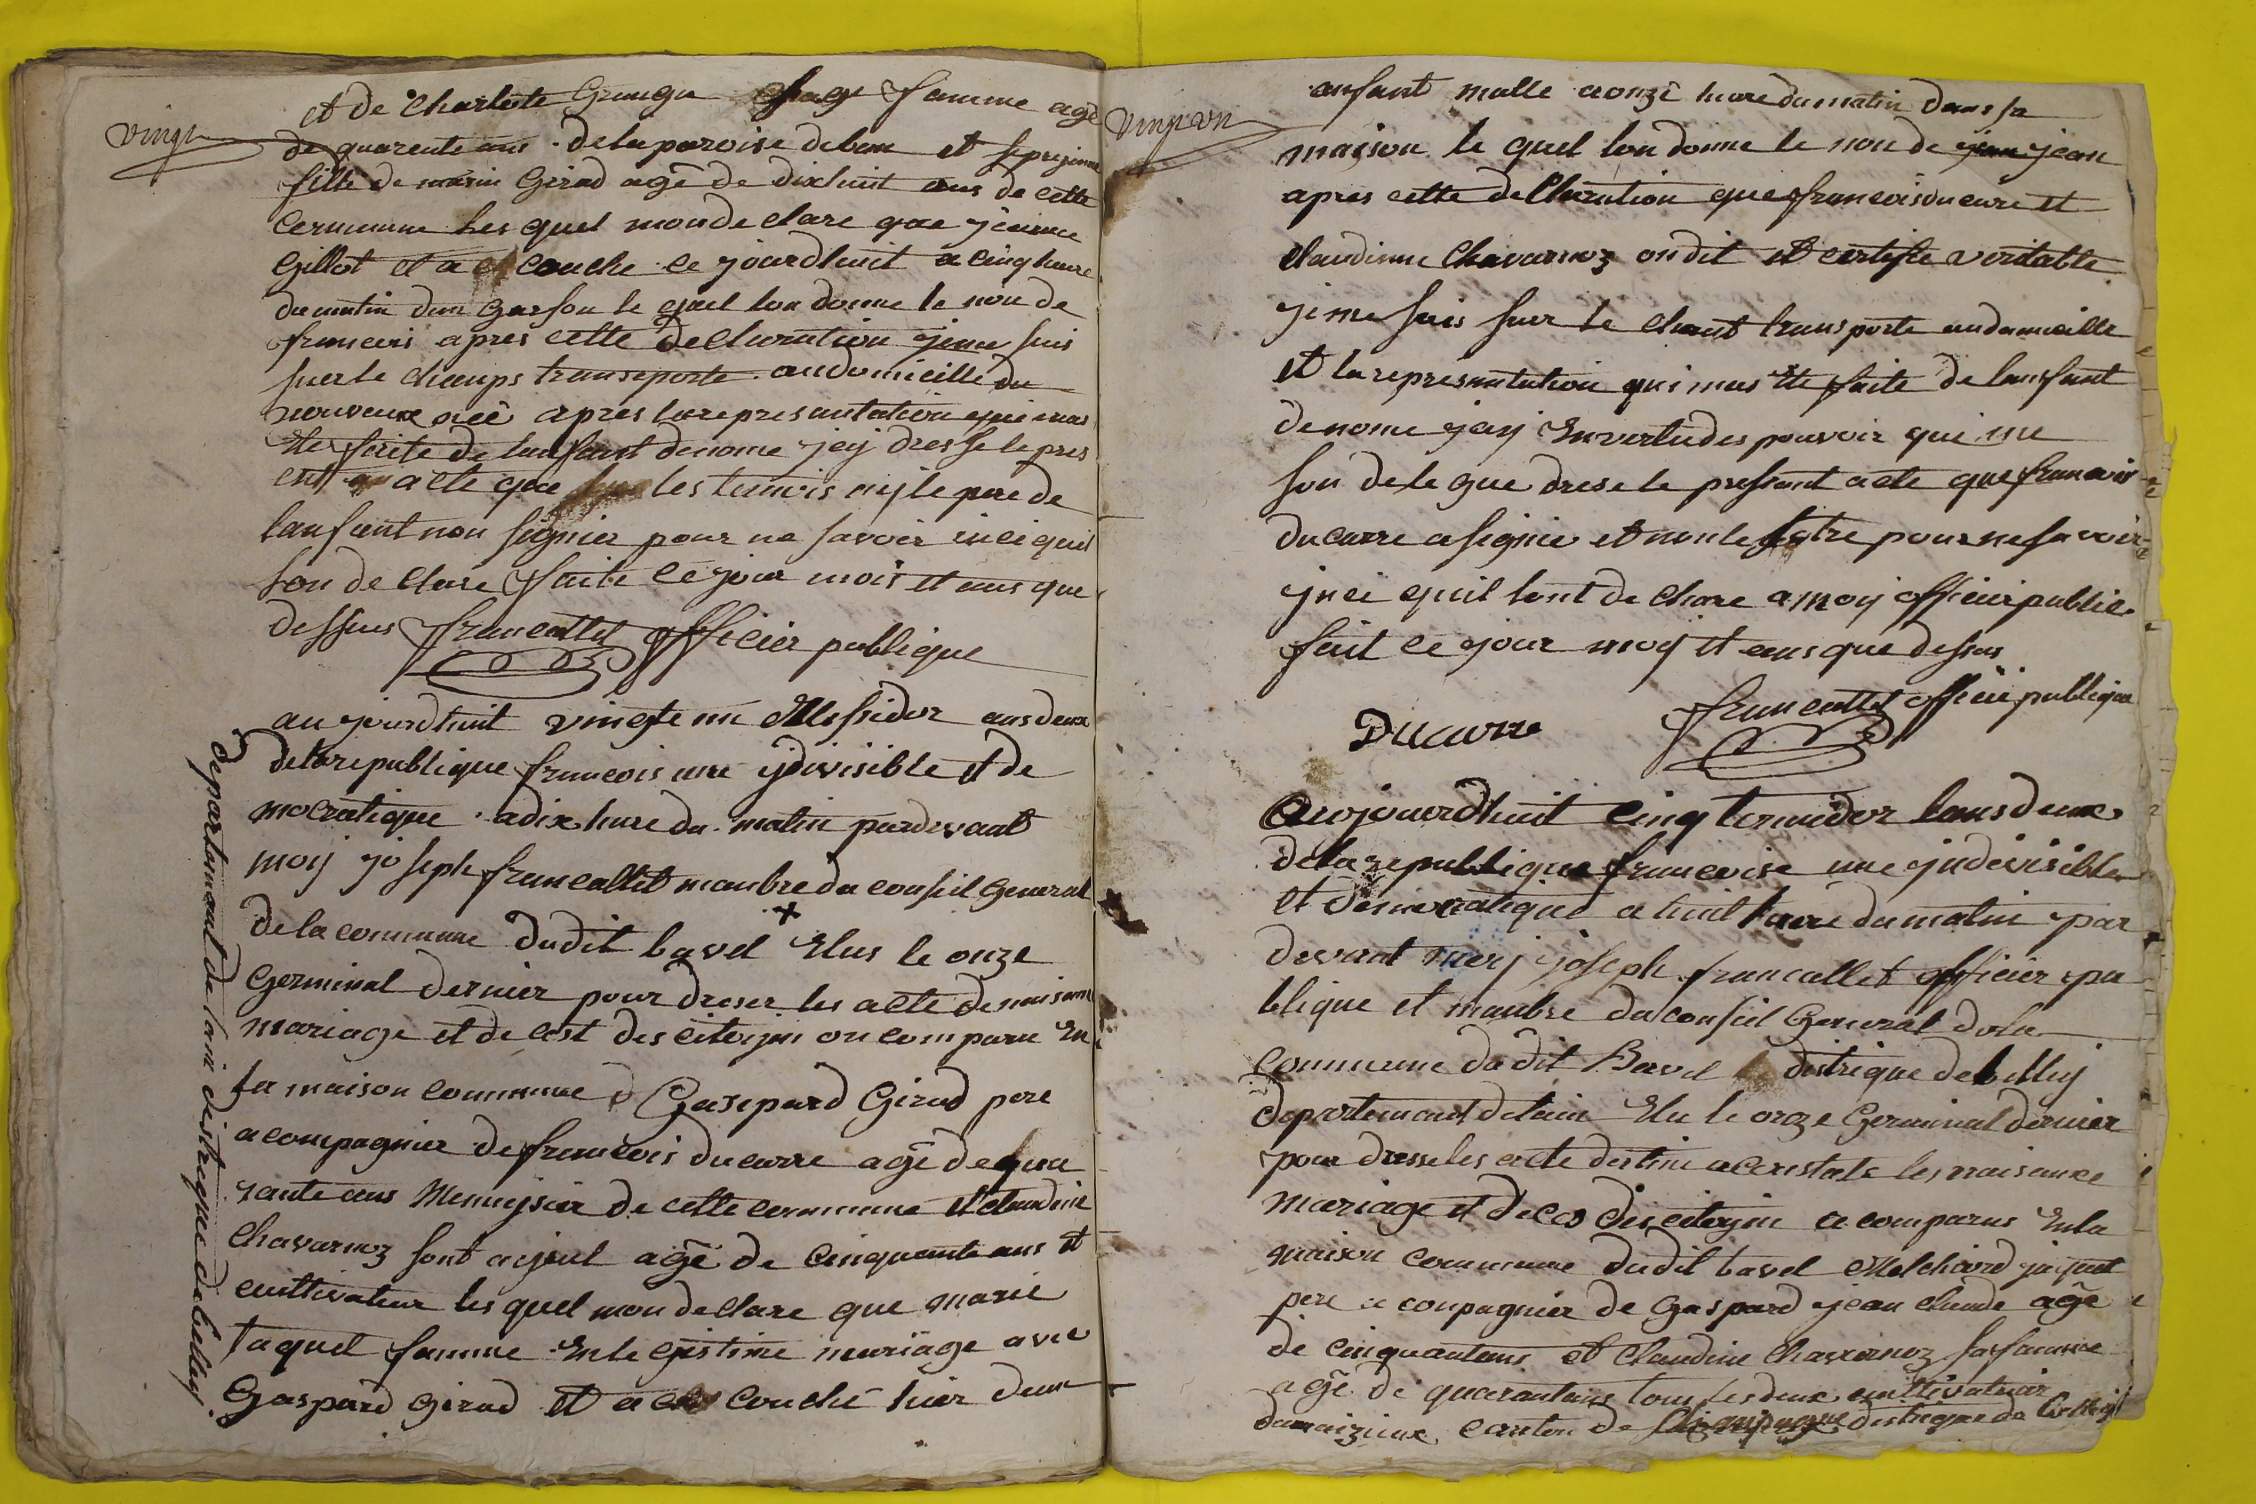 vingt
et de Charlote Grunge sage famme agè
de quarente ans de la paroise de ban et
fille de marin Girod agê de dixhuit ans de cette
Commune les quel mon de clare que
Gillot et a couche ce jourdhuit a cinq heure
du matin dun garson le quel lon donne le non de
francois apres cette declaration je me suis
sur le champs transporte au domicille du
nouveaux née apres la represantation qui mas
ete faite de lanfant denome jey dresse le pres
ent acte que les temois nÿ le pere de
lanfant non signier pour ne savoir inci quil
lon de clare faite ce jour mois et ans que
dessus francallet officier publique
au jourdhuit vingte un Messidor ans deux
de la republique francois une ÿdivisible et de
mocratique a dix hure du matin pardevant
moÿ joseph francallet manbre du conseil General
de la commune dudit bavel Elus le onze
Germinal dernier pour dreser les acte de naisans
mariage et de cest des citoyin on comparu En
la maison commune Gaspard Girod pere
acompagnier de francois ducarre agê de qua
rante ans Menuÿsier de cette commune et claudine
Chavarnoz sont aÿeul agê de Cinquante ans et
cultivateur les quel mon de clare que marie
taquet famme En le gistime mariage avec
Gaspard Girod et a couchê hier dun
departemant de lain distrique de belley
Vingt un
anfant malle a onzê hure du matin dans sa
maison le quel lon donne le non de jean
apres cette delharation que francois ducarre et
claudinne Chavarnoz on dit et certifie veritable
je me suis sur le chant transporte au damicille
et la represantation qui mas ete faite de lanfant
denome jaÿ En vertu des pouvoir qui me
son de le gue drese le pressant acte que francois
ducarre a signie et non le autre pour ne savoir
ÿnci quil lont de clare a moÿ officier public
fait ce jour moÿ et ans que dessus
Ducarre francallet officier publique
Aujourdhuit cinq termidor lans deux
de la republique francoise une jndivisible
et democratique a huit heure du matin par
devant moÿ joseph francallet officier pu
blique et manbre du conseil General de la
commune du dit Bavel distrique de belleÿ
departemant de lain Elu le onze Germinal dernier
pour dresse les acte destine a constate les naisance
mariage et deces des citoyin a comparus En la
maison commune dudit bavel Melchiord jaquet
pere a conpagnier de Gaspard jean claude agê
de cinquantans et Claudine Chavarnoz sa famme
agê de quarantans tous les deux cultivateur
canton de distrique de belley